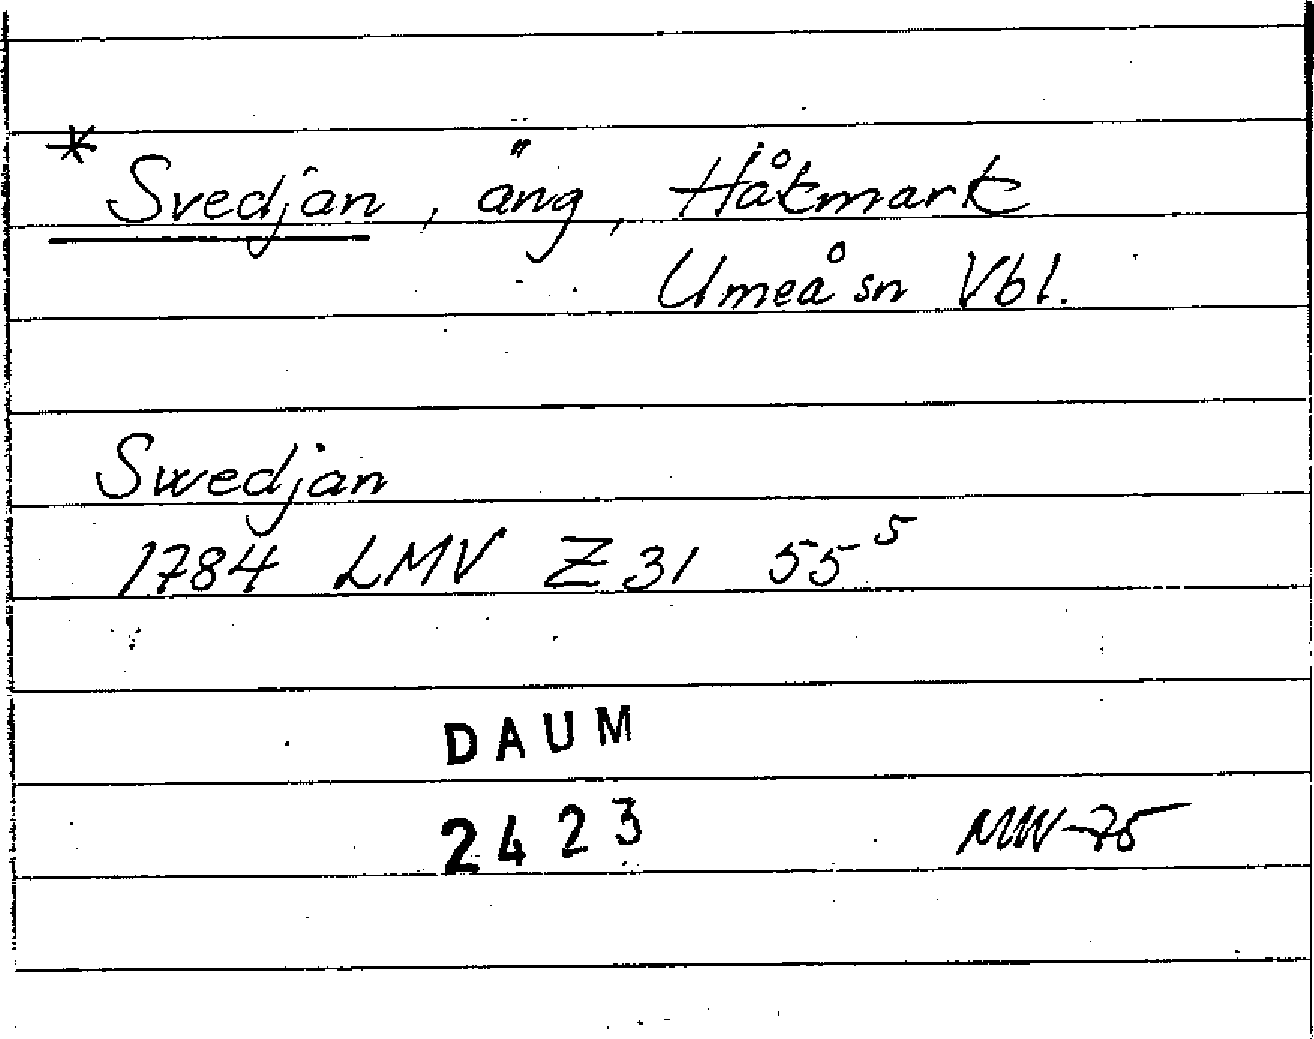 * Svedjan, äng, Håkmark
Umeå sn Vbl.
Swedjan
1784 LMV Z 31 55⁵
DAUM
2423
MW-75